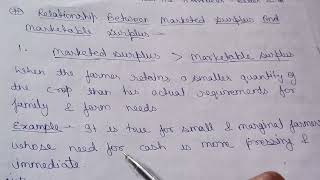 * Relationship Between Marketed surplus and
Marketable surplus -
1. Marketed surplus > Marketable surplus
When the farmer retains a smaller quantity of
the crop than his actual requirements for
family & farm needs
Example - It is true for small & marginal farmers
whose need for cash is more pressing &
immediate.